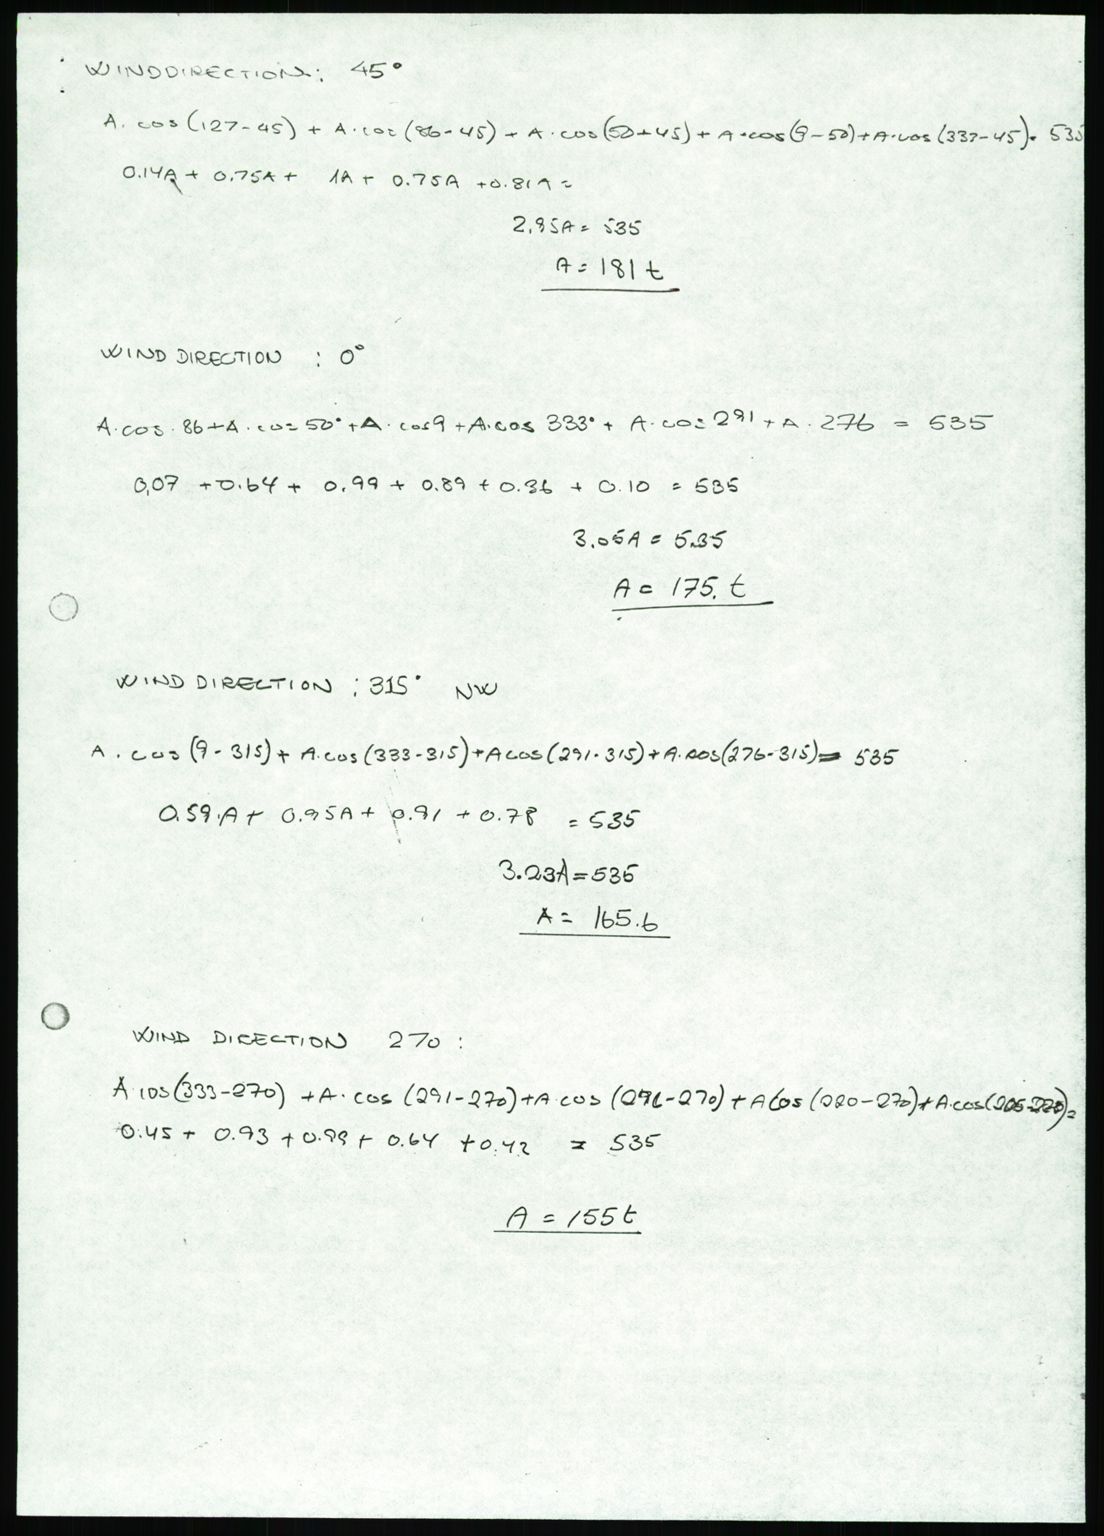 WINDDIRECTION: 45°
A. cos (127-45) + A. cos (86-45) + A. cos (50+45) + A. cos (9-50) + A. cos (333-45) = 535
0.14A + 0.75A + 1A + 0.75A + 0.81A =
2,95A = 535
A = 181 t
WIND DIRECTION : 0°
A. cos. 86 + A. cos 50° + A. cos 9 + A. cos 333° + A. cos 291 + A. 276 = 535
0,07 + 0.64 + 0.99 + 0.89 + 0.36 + 0.10 = 535
3.05A = 535
A = 175. t
WIND DIRECTION : 315° NW
A. cos (9-315) + A. cos (333-315) + A cos (291-315) + A. cos (276-315) = 535
0.59.A + 0.95A + 0.91 + 0.78 = 535
3.23A = 535
A = 165.6
WIND DIRECTION 270 :
A cos (333-270) + A. cos (291-270) + A cos (276-270) + A Cos (220-270) + A. cos ( =
0.45 + 0.93 + 0.99 + 0.64 + 0.42 = 535
A = 155 t